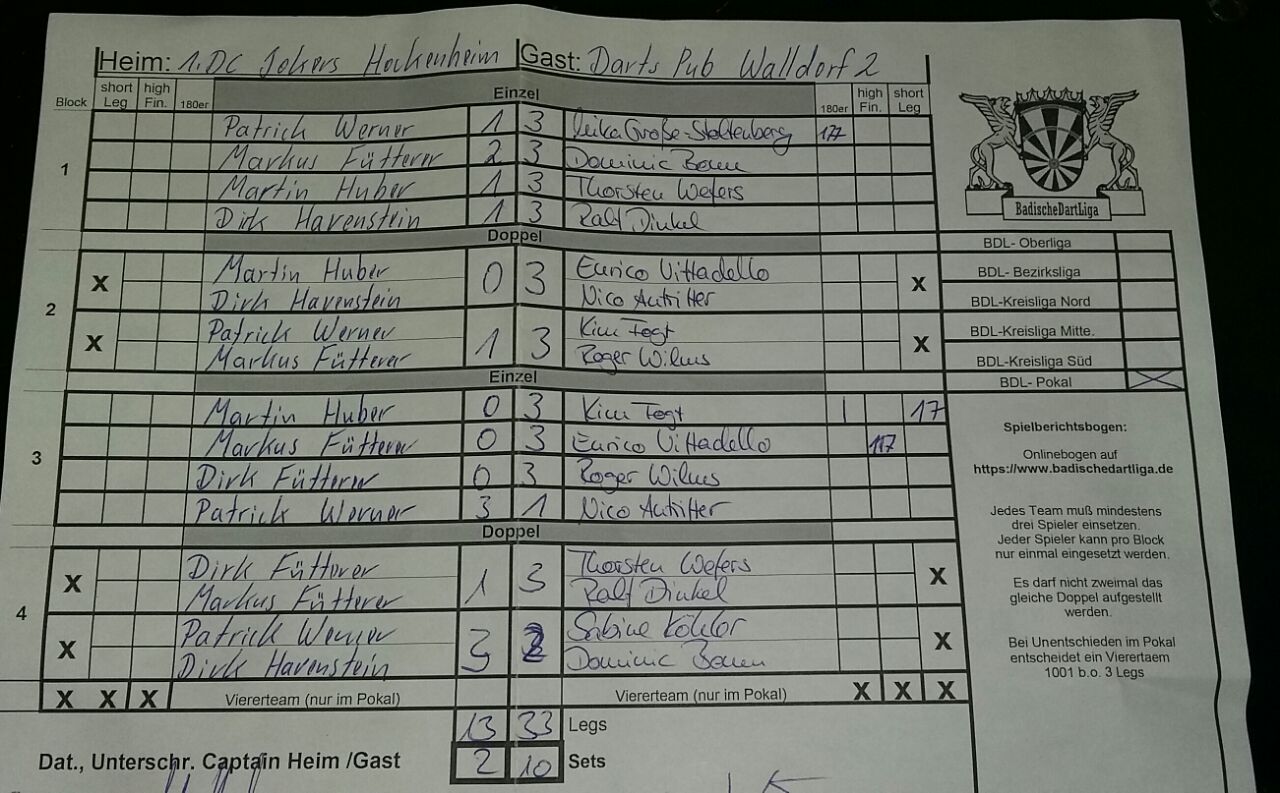 Heim: 1. DC Jokers Hockenheim Gast: Darts Pub Walldorf 2
Block short Leg high Fin. 180er Einzel 180er high Fin. short Leg
1
Patrick Werner 1 3 Große-Stoltenberg 177
Markus Fütterer 2 3 Dominic
Martin Huber 1 3 Thorsten Wefers
Dirk Havenstein 1 3 Ralf Dinkel
Doppel
2
X Martin Huber 0 3 Eurico Vittadello X
Dirk Havenstein Nico Autritter
X Patrick Werner 1 3 Kim Fogt X
Markus Fütterer Roger Wilms
Einzel
3
Martin Huber 0 3 Kim Fogt 1 17
Markus Fütterer 0 3 Eurico Vittadello 117
Dirk Fütterer 0 3 Roger Wilms
Patrick Werner 3 1 Nico Autritter
Doppel
4
X Dirk Fütterer 1 3 Thorsten Wefers X
Markus Fütterer Ralf Dinkel
X Patrick Werner 3 2 Sabine Köhler X
Dirk Havenstein Dominic
X X X Viererteam (nur im Pokal) Viererteam (nur im Pokal) X X X
13 33 Legs
Dat., Unterschr. Captain Heim /Gast 2 10 Sets
BadischeDartLiga
BDL- Oberliga
BDL- Bezirksliga
BDL-Kreisliga Nord
BDL-Kreisliga Mitte.
BDL-Kreisliga Süd
BDL- Pokal X
Spielberichtsbogen:
Onlinebogen auf
https://www.badischedartliga.de
Jedes Team muß mindestens
drei Spieler einsetzen.
Jeder Spieler kann pro Block
nur einmal eingesetzt werden.
Es darf nicht zweimal das
gleiche Doppel aufgestellt
werden.
Bei Unentschieden im Pokal
entscheidet ein Vierertaem
1001 b.o. 3 Legs